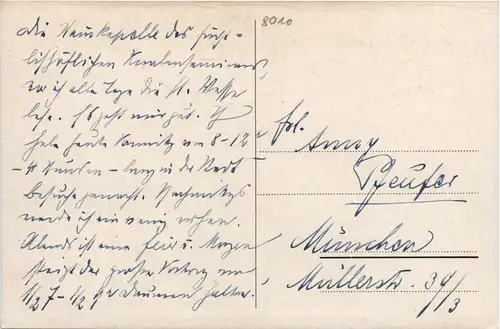 8010
Die Hauskapelle des fürst-
bischöflichen Knabenseminars,
wo ich alle Tage die hl. Messe
lese. Es geht mir gut. Ich
habe heute Vormittg von 8-12
- 4 Stunden - lang in der Stadt
Besuche gemacht. Nachmittags
werde ich ein wenig ruhen.
Abends ist eine Feier u. Morgen
steigt der große Vortrag von
1/2 7 - 1/2 9 Daumen halten.
Frl.
Anny
Pfeufer
München
Müllerstr. 34/3